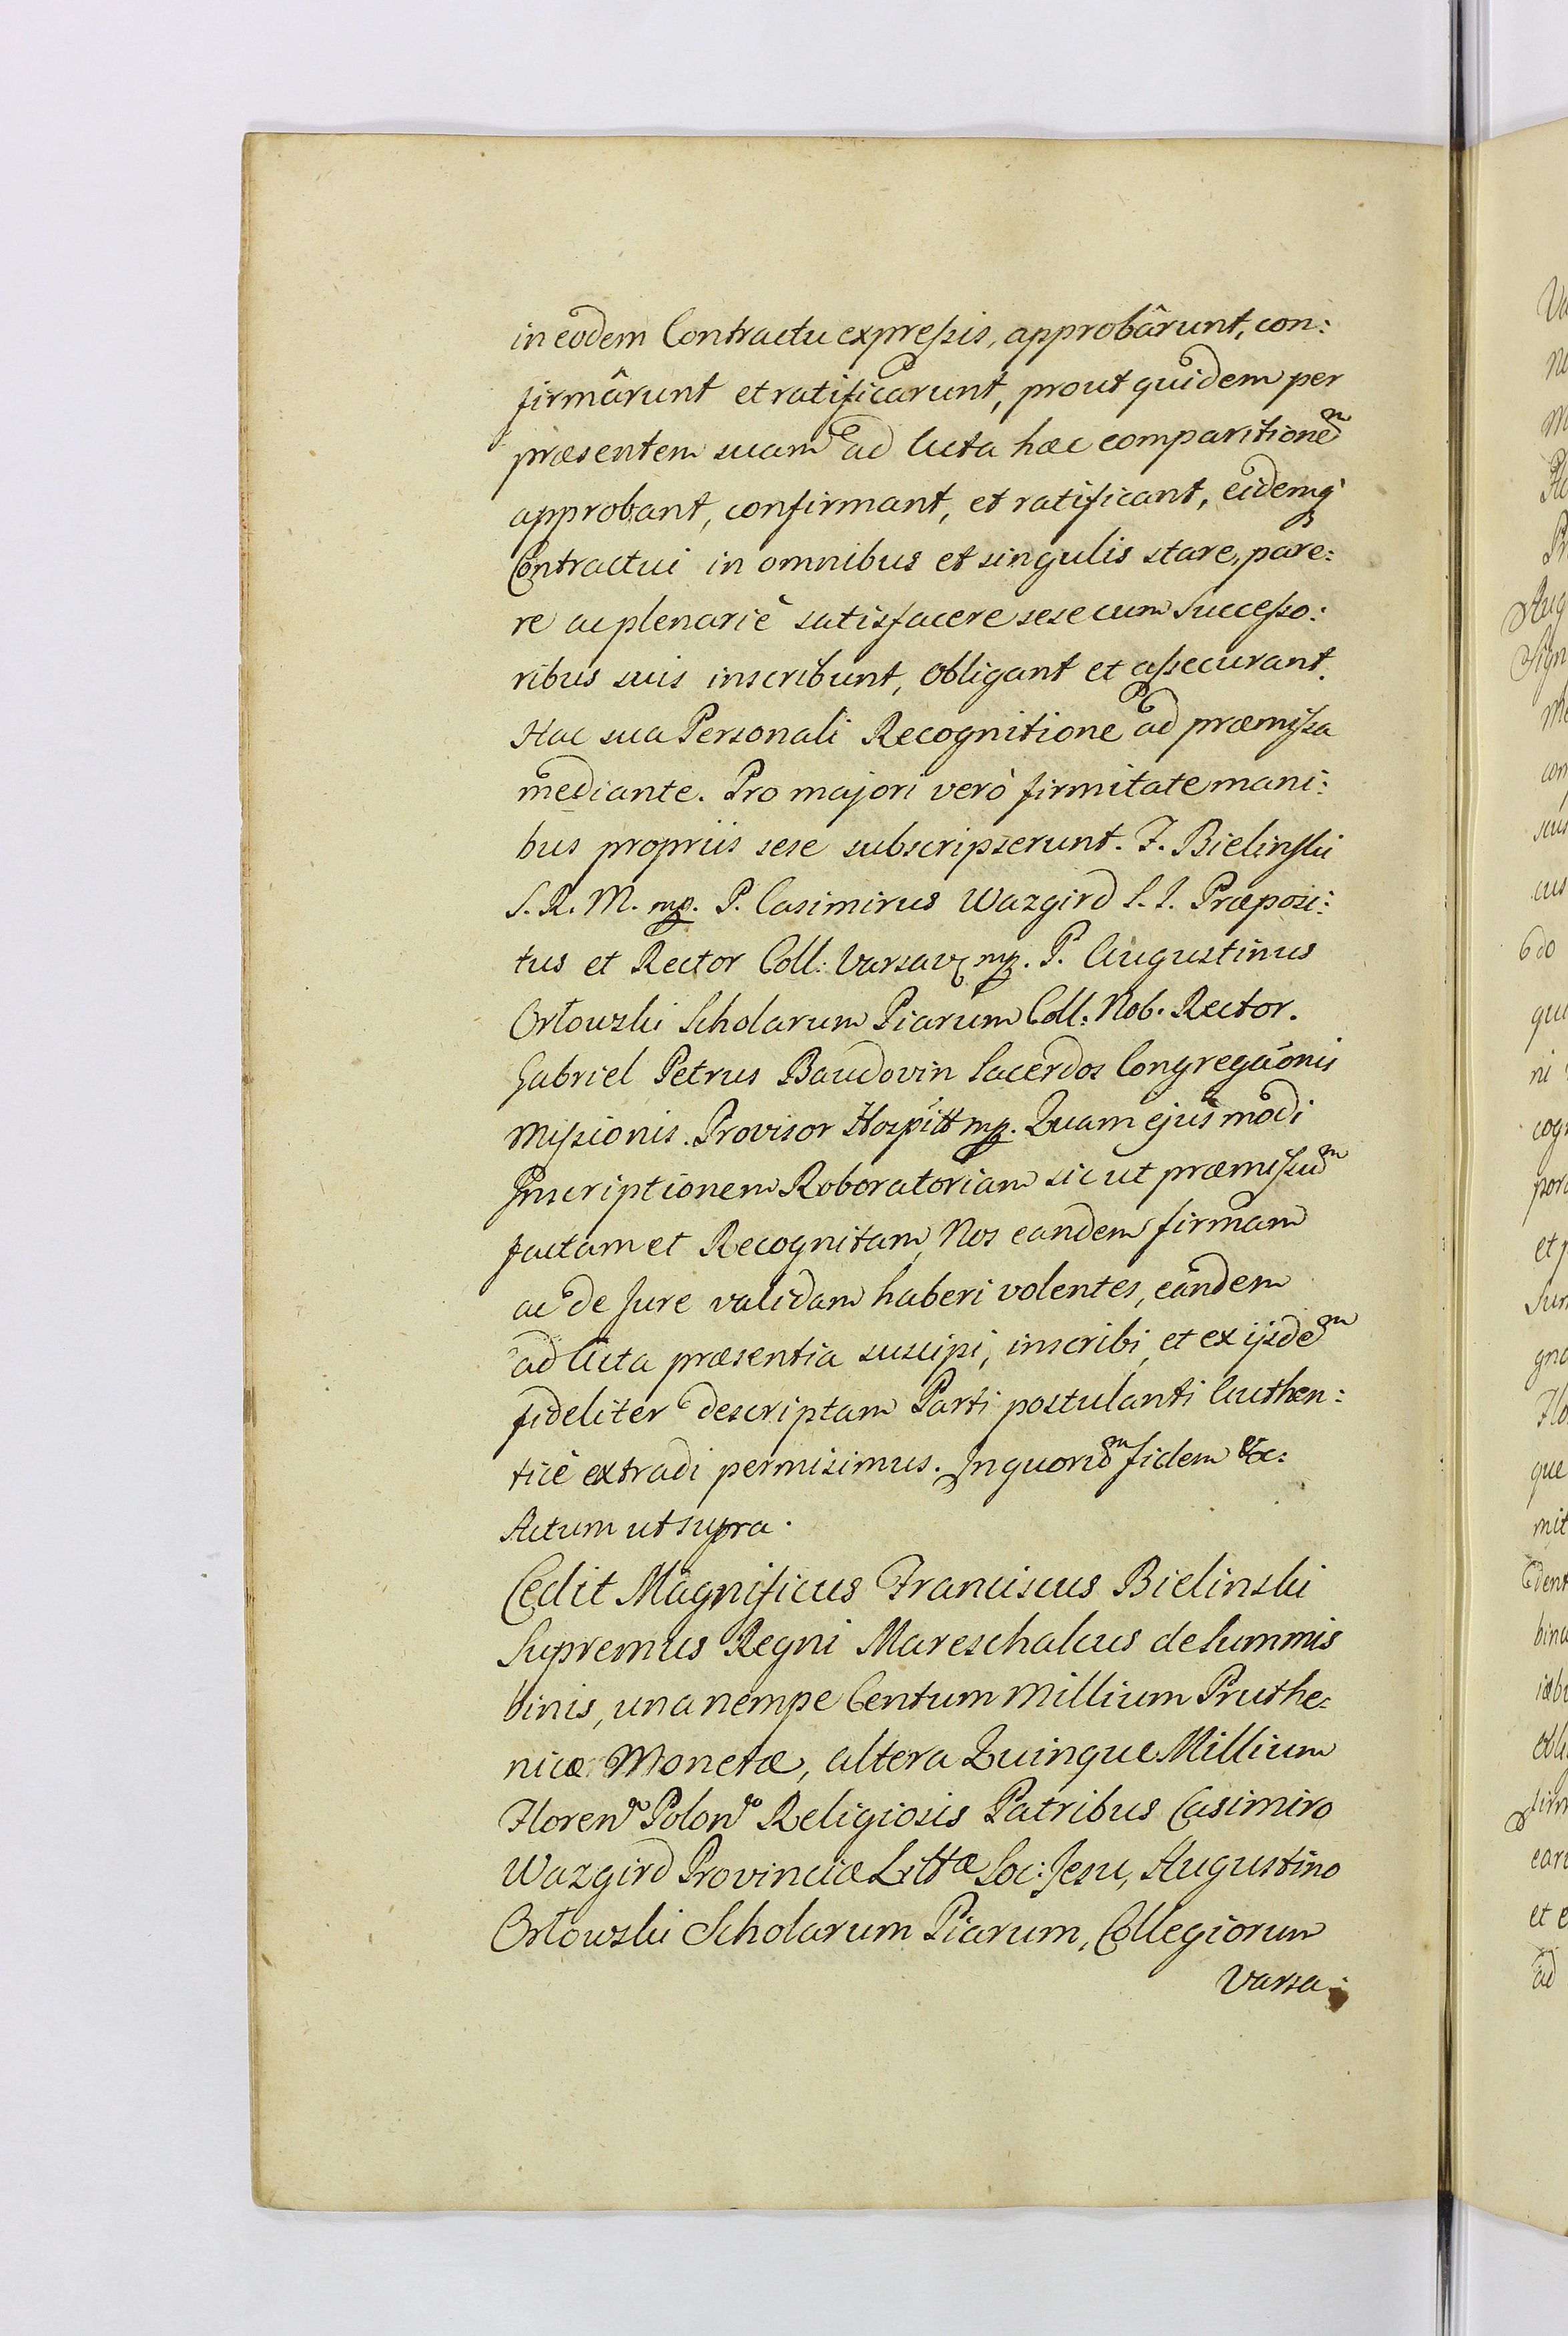 in eodem Contractu expreſsis, approbârunt, con:
firmârunt et ratificarunt, prout quidem per
præsentem suam ad Acta hæc comparitionem
approbant, confirmant, et ratificant, eidemq́
Contractui in omnibus et singulis stare, pare:
re ac plenariè satisfacere sese cum Succeſso:
ribus suis inscribunt, obligant et aſsecurant.
Hac sua Personali Recognitione ad præmiſsa
mediante. Pro majori verò firmitate mani:
bus propriis sese subscripserunt. F. Bielinski
S. R. M. mp. P. Casimirus Wazgird S. J. Præposi:
tus et Rector Coll: Varsav mp. P. Augustinus
Orłowski Scholarum Piarum Coll: Nob. Rector.
Gabriel Petrus Baudovin Sacerdos Congregãonis
Miſsionis. Provisor Hospitt mp. Quam ejusmodi
Inscriptionem Roboratoriam sic ut præmiſsum
factam et Recognitam, Nos eandem firmam
ac de Jure validam haberi volentes, eandem
ad Acta præsentia suscipi, inscribi, et ex ijsdem
fideliter descriptam Parti postulanti Authen:
ticè extradi permisimus. In quorum fidem &c:
Actum ut supra.
Cedit Magnificus Franciscus Bielinski
Supremus Regni Mareschalcus de Summis
binis, una nempe Centum Millium Pruthe:
nicæ Monetæ, altera Quinque Millium
Floren Polon Religiosis Patribus Casimiro
Wazgird Provinciæ Littæ Soc: Jesu, Augustino
Orłowski Scholarum Piarum, Collegiorum
Varsa: